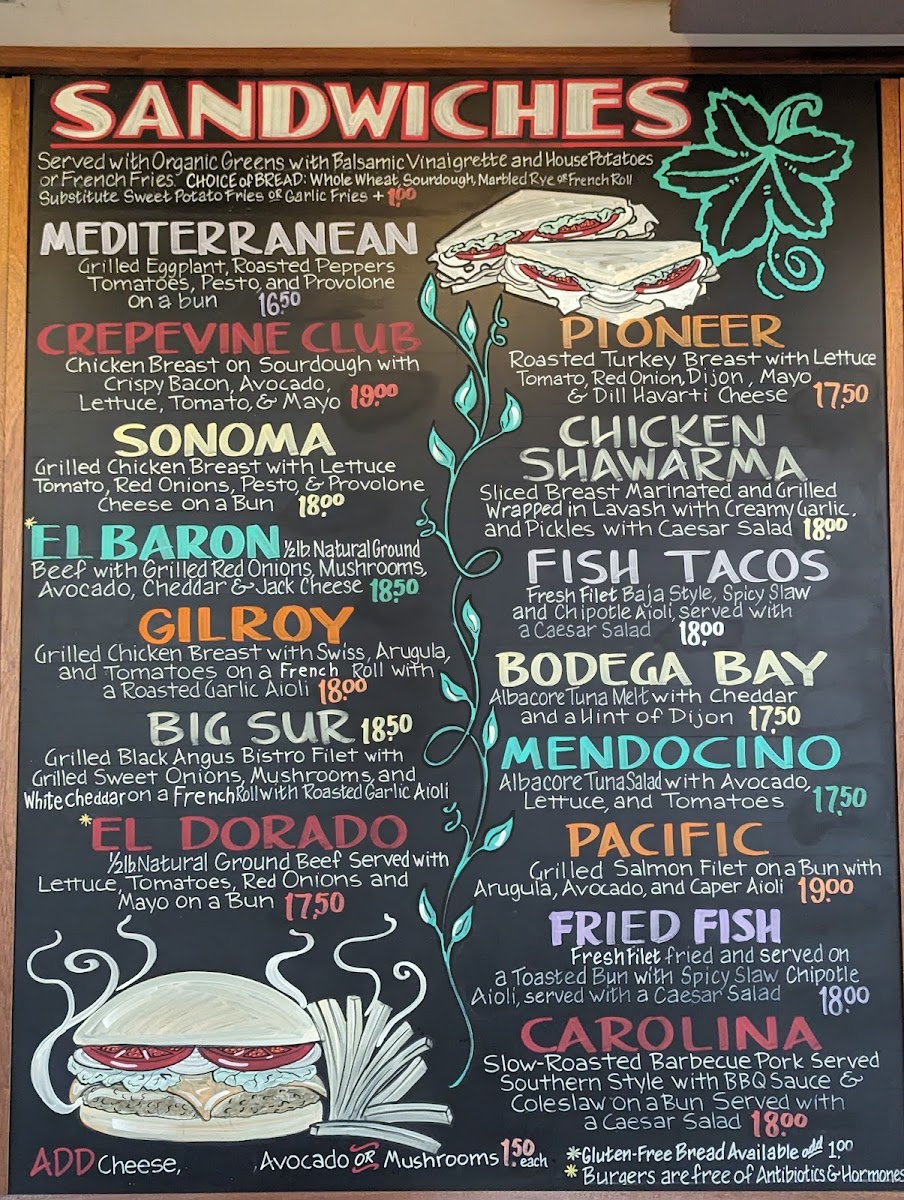 SANDWICHES
Served with Organic Greens with Balsamic Vinaigrette and House Potatoes
or French Fries. CHOICE of BREAD: Whole Wheat, Sourdough, Marbled Rye or French Roll
Substitute Sweet Potato Fries or Garlic Fries + 1.00
MEDITERRANEAN
Grilled Eggplant, Roasted Peppers
Tomatoes, Pesto, and Provolone
on a bun 16.50
CREPEVINE CLUB
Chicken Breast on Sourdough with
Crispy Bacon, Avocado,
Lettuce, Tomato, & Mayo 19.00
SONOMA
Grilled Chicken Breast with Lettuce
Tomato, Red Onions, Pesto, & Provolone
Cheese on a Bun 18.00
*EL BARON 1/2 lb Natural Ground
Beef with Grilled Red Onions, Mushrooms,
Avocado, Cheddar & Jack Cheese 18.50
GILROY
Grilled Chicken Breast with Swiss, Arugula,
and Tomatoes on a French Roll with
a Roasted Garlic Aioli 18.00
BIG SUR 18.50
Grilled Black Angus Bistro Filet with
Grilled Sweet Onions, Mushrooms, and
White Cheddar on a French Roll with Roasted Garlic Aioli
*EL DORADO
1/2 lb Natural Ground Beef Served with
Lettuce, Tomatoes, Red Onions and
Mayo on a Bun 17.50
PIONEER
Roasted Turkey Breast with Lettuce
Tomato, Red Onion, Dijon, Mayo
& Dill Havarti Cheese 17.50
CHICKEN
SHAWARMA
Sliced Breast Marinated and Grilled
Wrapped in Lavash with Creamy Garlic,
and Pickles with Caesar Salad 18.00
FISH TACOS
Fresh Filet Baja Style, Spicy Slaw
and Chipotle Aioli, served with
a Caesar Salad 18.00
BODEGA BAY
Albacore Tuna Melt with Cheddar
and a Hint of Dijon 17.50
MENDOCINO
Albacore Tuna Salad with Avocado,
Lettuce, and Tomatoes 17.50
PACIFIC
Grilled Salmon Filet on a Bun with
Arugula, Avocado, and Caper Aioli 19.00
FRIED FISH
Fresh Filet fried and served on
a Toasted Bun with Spicy Slaw Chipotle
Aioli, served with a Caesar Salad 18.00
CAROLINA
Slow-Roasted Barbecue Pork Served
Southern Style with BBQ Sauce &
Coleslaw on a Bun Served with
a Caesar Salad 18.00
ADD Cheese, Avocado OR Mushrooms 1.50 each
*Gluten-Free Bread Available add 1.00
* Burgers are free of Antibiotics & Hormones